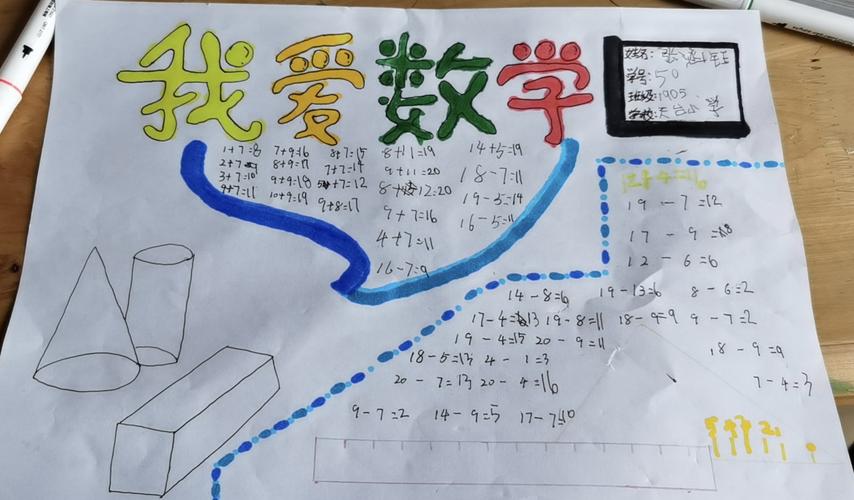 我爱数学
姓名:
学号:50
班级:1905
学校:天台小学
1+7=8
2+7=
3+7=10
4+7=11
7+9=16
8+9=17
9+9=18
10+9=19
8+7=15
7+7=14
5+7=12
9+8=17
8+11=19
9+11=20
8+12=20
9+7=16
4+7=11
16-7=9
14+5=19
18-7=11
19-5=14
16-5=11
19-7=12
17-9=8
12-6=6
14-8=6 19-13=6 8-6=2
17-4=13 19-8=11 18-9=9 9-7=2
19-4=15 20-9=11 18-9=9
18-5=13 4-1=3
7-4=3
20-7=13 20-4=16
9-7=2 14-9=5 17-7=10